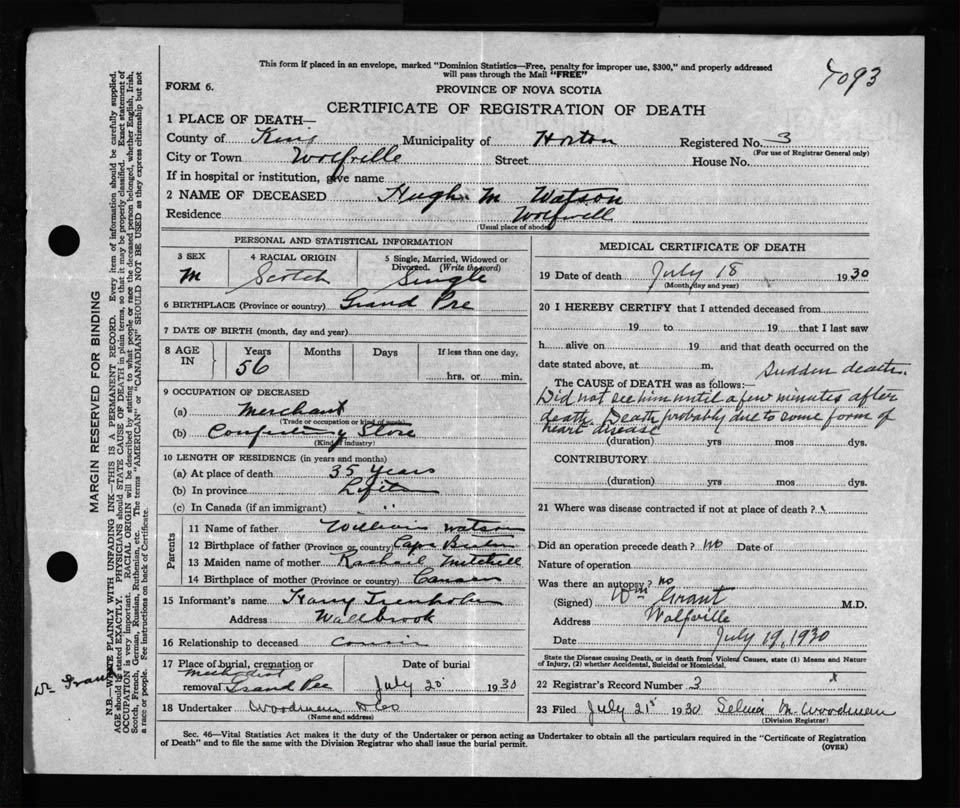 This form if placed in an envelope, marked "Dominion Statistics—Free, penalty for improper use, $300," and properly addressed
will pass through the Mail "FREE"
7093
FORM 6.
PROVINCE OF NOVA SCOTIA
CERTIFICATE OF REGISTRATION OF DEATH
1 PLACE OF DEATH—
County of Kings Municipality of Horton Registered No. 3
(For use of Registrar General only)
City or Town Wolfville Street House No.
If in hospital or institution, give name
2 NAME OF DECEASED Hugh M Watson
Residence Wolfville
(Usual place of abode)
PERSONAL AND STATISTICAL INFORMATION
3 SEX 4 RACIAL ORIGIN 5 Single, Married, Widowed or
Divorced. (Write the word)
M Scotch Single
6 BIRTHPLACE (Province or country) Grand Pre
7 DATE OF BIRTH (month, day and year)
8 AGE IN Years Months Days If less than one day,
56 hrs. or min.
9 OCCUPATION OF DECEASED
(a) Merchant
(Trade or occupation or kind of work)
(b) Store
(Kind of industry)
10 LENGTH OF RESIDENCE (in years and months)
(a) At place of death 35 Years
(b) In province Life
(c) In Canada (if an immigrant) " "
Parents
11 Name of father William Watson
12 Birthplace of father (Province or country) Cape Breton
13 Maiden name of mother Rachael Mitchell
14 Birthplace of mother (Province or country)
15 Informant's name Harry Trenholm
Address Wallbrook
16 Relationship to deceased Cousin
17 Place of burial, cremation or Date of burial
Methodist
removal Grand Pre July 20 1930
18 Undertaker Woodman & Co
(Name and address)
MEDICAL CERTIFICATE OF DEATH
19 Date of death July 18 1930
(Month, day and year)
20 I HEREBY CERTIFY that I attended deceased from
19 to 19 that I last saw
h alive on 19 and that death occurred on the
date stated above, at m. Sudden death.
The CAUSE of DEATH was as follows:—
Did not see him until a few minutes after
death. Death probably due to some form of
heart disease
(duration) yrs mos dys.
CONTRIBUTORY
(duration) yrs mos dys.
21 Where was disease contracted if not at place of death?
Did an operation precede death? No Date of
Nature of operation
Was there an autopsy? no
(Signed) Wm Grant M.D.
Address Wolfville
Date July 19, 1930
State the Disease Causing Death, or in death from Violent Causes, state (1) Means and Nature
of Injury, (2) whether Accidental, Suicidal or Homicidal.
22 Registrar's Record Number 3
23 Filed July 21st 1930 Selina M. Woodman
(Division Registrar)
Sec. 46—Vital Statistics Act makes it the duty of the Undertaker or person acting as Undertaker to obtain all the particulars required in the "Certificate of Registration
of Death" and to file the same with the Division Registrar who shall issue the burial permit.
(OVER)
MARGIN RESERVED FOR BINDING
N.B.—WRITE PLAINLY WITH UNFADING INK—THIS IS A PERMANENT RECORD. Every item of information should be carefully supplied.
AGE should be stated EXACTLY. PHYSICIANS should STATE CAUSE OF DEATH in plain terms, so that it may be properly classified. Exact statement of
OCCUPATION is very important. RACIAL ORIGIN will be described by stating to what people or race the deceased person belonged, whether English, Irish,
Scotch, French, German, Russian, Ruthenian, etc. The terms "AMERICAN" or "CANADIAN" SHOULD NOT BE USED as they express citizenship but not
a race or people. See instructions on back of Certificate.